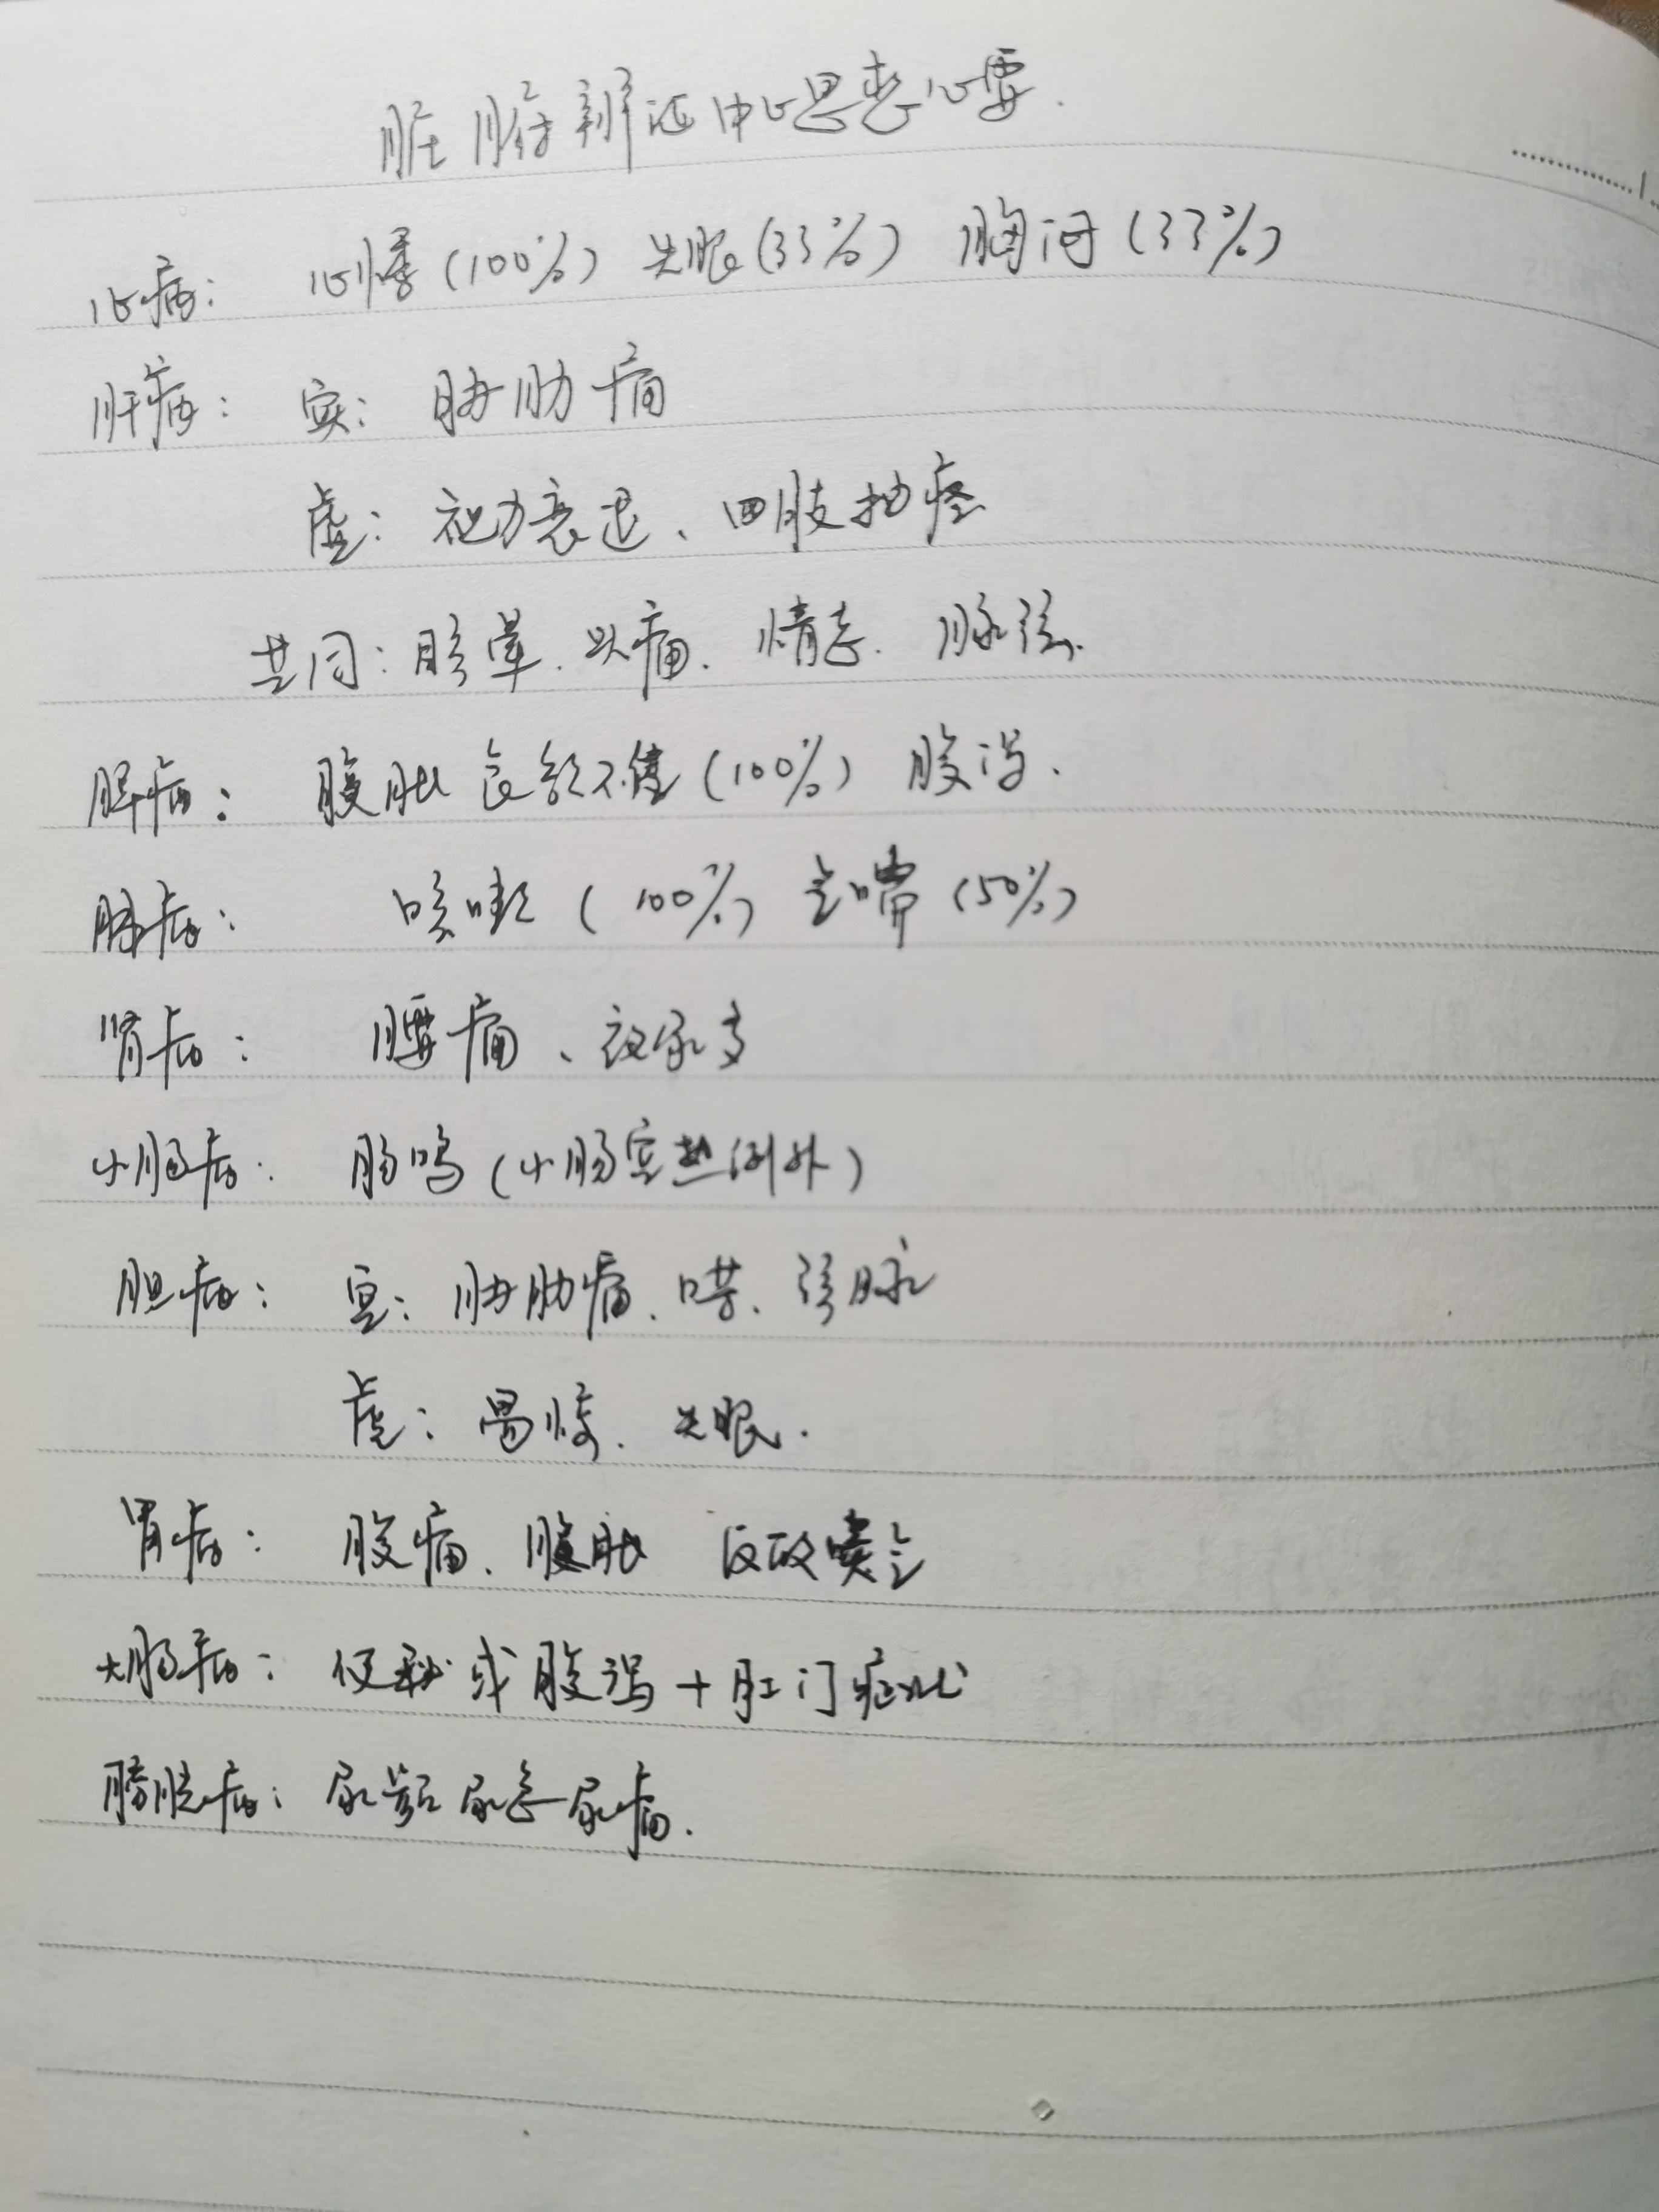 脏腑辨证中心思考心要.
心病: 心悸(100%) 失眠(33%) 胸闷(33%)
肝病: 实: 胁肋痛
虚: 视力衰退、四肢抽痉
共同: 眩晕. 头痛. 情志. 脉弦.
脾病: 腹胀 食欲不佳(100%) 腹泻.
肺病: 咳嗽(100%) 气喘(50%)
肾病: 腰痛、夜尿多
小肠病: 肠鸣(小肠实热例外)
胆病: 实: 胁肋痛. 口苦. 弦脉
虚: 易惊. 失眠.
胃病: 腹痛. 腹胀 反酸嗳气
大肠病: 便秘或腹泻+肛门症状
膀胱病: 尿频尿急尿痛.